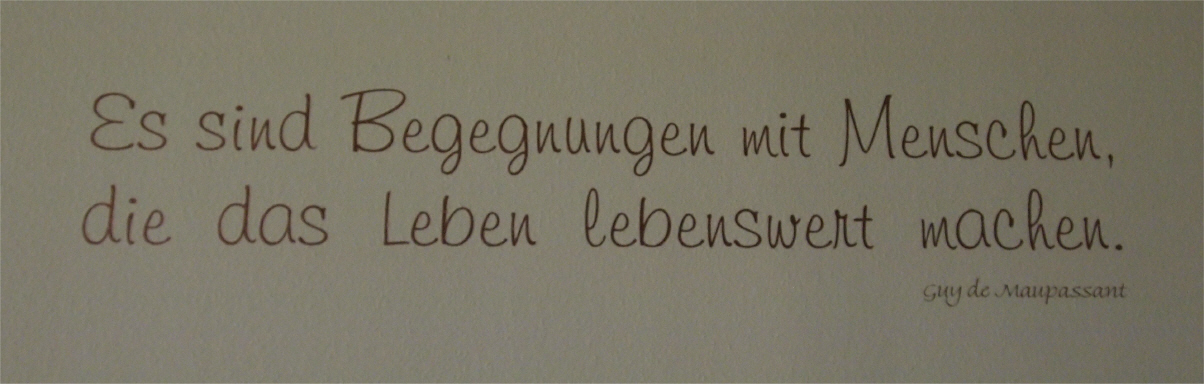 Es sind Begegnungen mit Menschen,
die das Leben lebenswert machen.
Guy de Maupassant